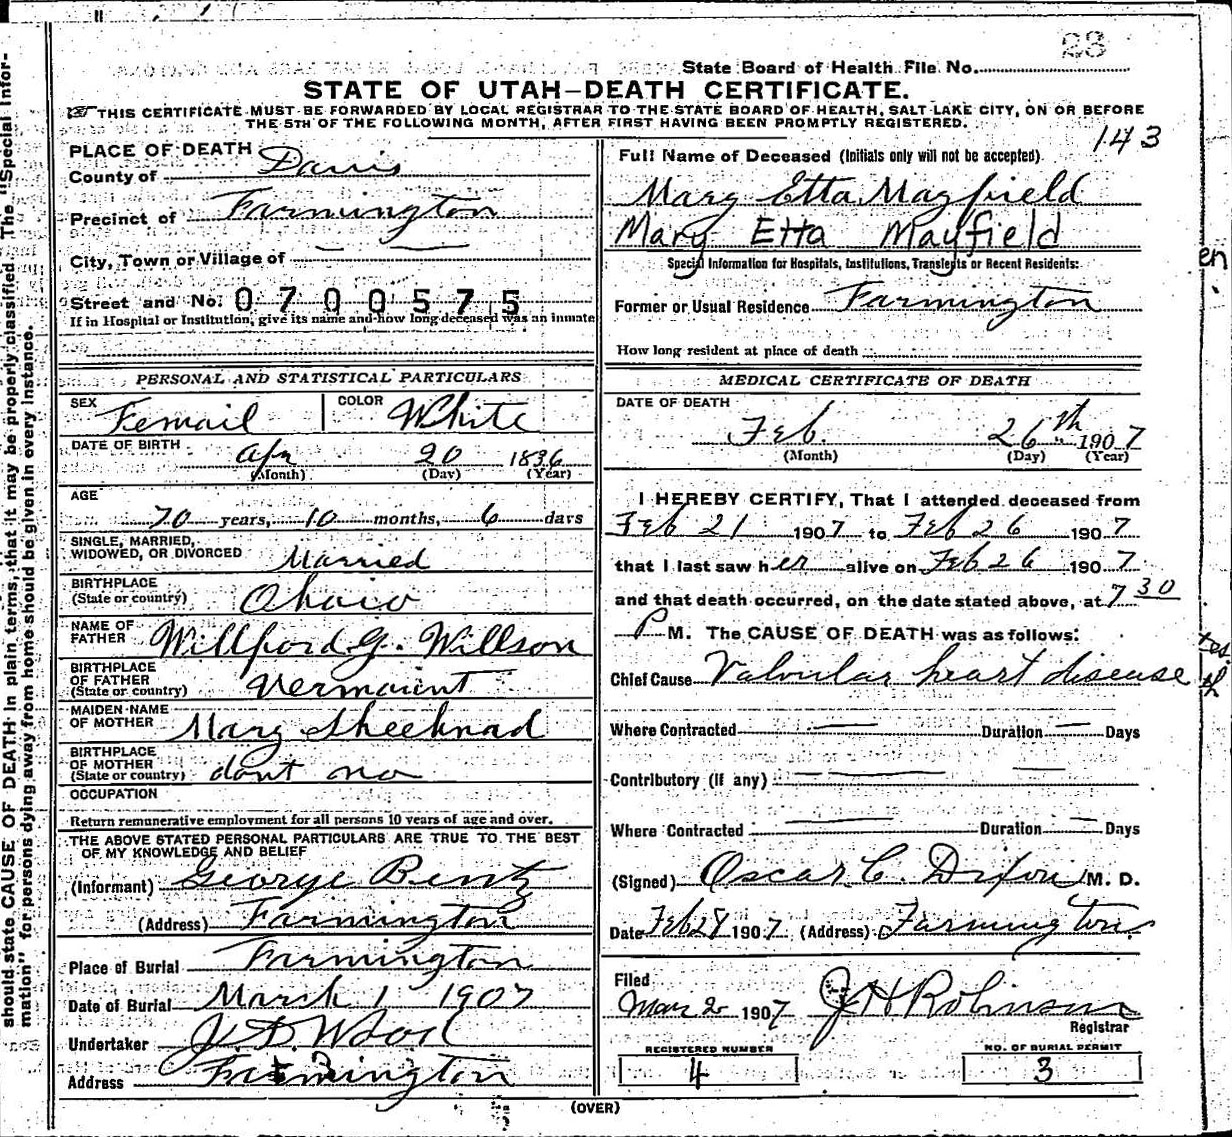 23
State Board of Health File No.
STATE OF UTAH—DEATH CERTIFICATE.
THIS CERTIFICATE MUST BE FORWARDED BY LOCAL REGISTRAR TO THE STATE BOARD OF HEALTH, SALT LAKE CITY, ON OR BEFORE
THE 5TH OF THE FOLLOWING MONTH, AFTER FIRST HAVING BEEN PROMPTLY REGISTERED.
143
PLACE OF DEATH
County of Davis
Precinct of Farmington
City, Town or Village of
Street and No. 0700575
If in Hospital or Institution, give its name and how long deceased was an inmate
Full Name of Deceased (Initials only will not be accepted)
Mary Etta Mayfield
Mary Etta Mayfield
Special Information for Hospitals, Institutions, Transients or Recent Residents:
Former or Usual Residence Farmington
How long resident at place of death
PERSONAL AND STATISTICAL PARTICULARS
SEX Femail COLOR White
DATE OF BIRTH Apr 20 1836
(Month) (Day) (Year)
AGE
70 years, 10 months, 6 days
SINGLE, MARRIED,
WIDOWED, OR DIVORCED Married
BIRTHPLACE
(State or country) Ohaio
NAME OF
FATHER Willford G. Willson
BIRTHPLACE
OF FATHER
(State or country) Vermount
MAIDEN NAME
OF MOTHER Mary
BIRTHPLACE
OF MOTHER
(State or country) dont no
OCCUPATION
Return remunerative employment for all persons 10 years of age and over.
THE ABOVE STATED PERSONAL PARTICULARS ARE TRUE TO THE BEST
OF MY KNOWLEDGE AND BELIEF
(Informant) George Bentz
(Address) Farmington
Place of Burial Farmington
Date of Burial March 1 1907
Undertaker J. D. Wood
Address Farmington
MEDICAL CERTIFICATE OF DEATH
DATE OF DEATH
Feb. 26th 1907
(Month) (Day) (Year)
I HEREBY CERTIFY, That I attended deceased from
Feb 21 1907 to Feb 26 1907
that I last saw her alive on Feb 26 1907
and that death occurred, on the date stated above, at 7 30
P M. The CAUSE OF DEATH was as follows:
Chief Cause Valvular heart disease
Where Contracted Duration Days
Contributory (if any)
Where Contracted Duration Days
(Signed) Oscar C. Dixon M. D.
Date Feb 28 1907 (Address) Farmington
Filed
Mar 2 1907 J H Robinson
Registrar
REGISTERED NUMBER
4
NO. OF BURIAL PERMIT
3
(OVER)
should state CAUSE OF DEATH in plain terms, that it may be properly classified. The "Special Infor-
mation" for persons dying away from home should be given in every instance.